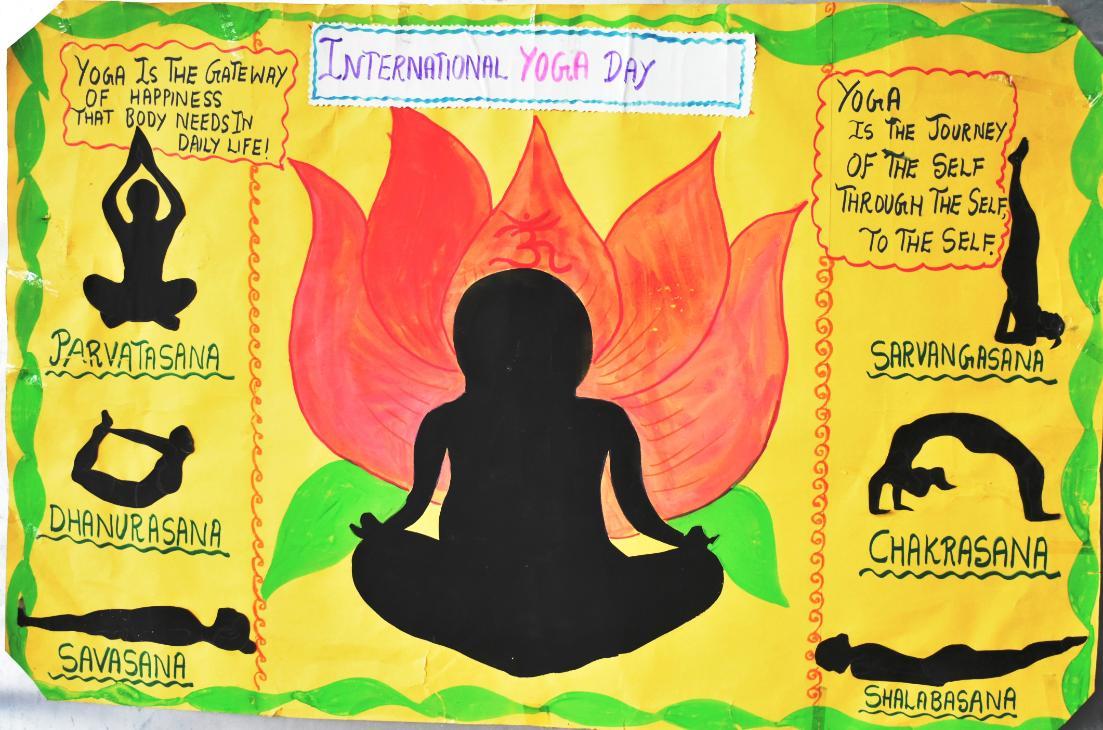 INTERNATIONAL YOGA DAY
YOGA IS THE GATEWAY
OF HAPPINESS
THAT BODY NEEDS IN
DAILY LIFE!
PARVATASANA
DHANURASANA
SAVASANA
ॐ
YOGA
IS THE JOURNEY
OF THE SELF
THROUGH THE SELF,
TO THE SELF.
SARVANGASANA
CHAKRASANA
SHALABASANA